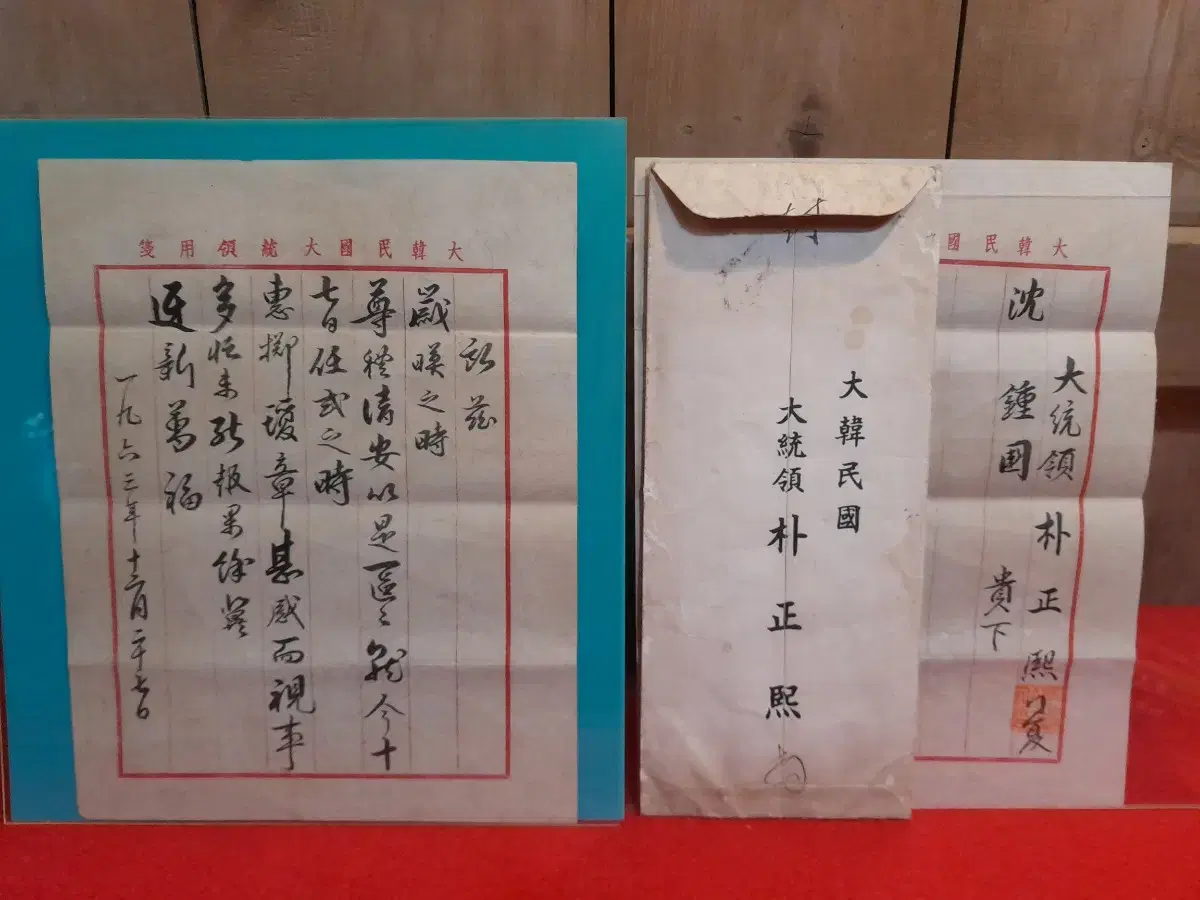 大韓民國大統領用箋
茲
歲暎之時
尊體清安以是區〻就今十
七日任式之時
惠擲瓊章甚感而視事
多忙未能報果餘冀
迓新萬福
一九六三年十二月二十七日
大韓民國
大統領 朴正熙
大韓民國
大統領 朴正熙
沈鍾国 貴下